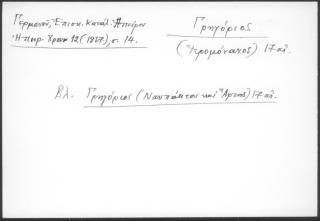 Γερμανοῦ, Ἐπισκ. Κατάλ. Ἠπείρου
Ἠπειρ. Χρον. 12 (1937), σ. 14.
Γρηγόριος
(Ἱερομόναχος) 17 αἰ.
Βλ. Γρηγόριος (Ναυπάκτου καὶ Ἄρτης) 17 αἰ.